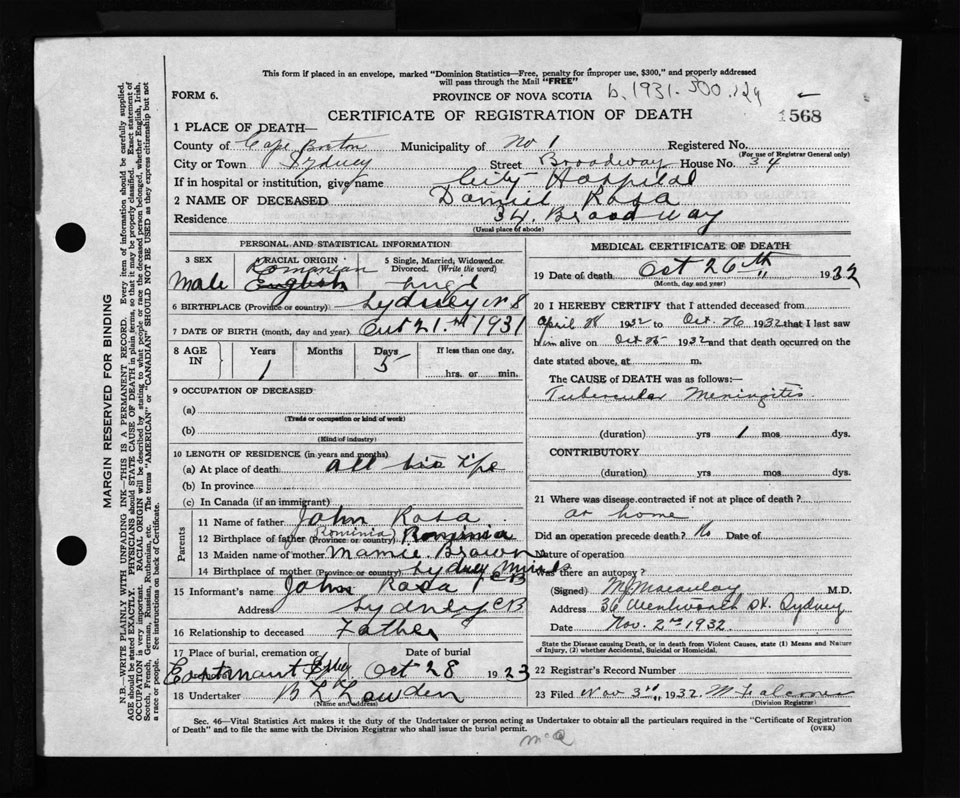 This form if placed in an envelope, marked "Dominion Statistics—Free, penalty for improper use, $300," and properly addressed
will pass through the Mail "FREE"
FORM 6.
PROVINCE OF NOVA SCOTIA
b. 1931. 500.
CERTIFICATE OF REGISTRATION OF DEATH
1568
1 PLACE OF DEATH—
County of Cape Breton Municipality of No 1 Registered No.
(For use of Registrar General only)
City or Town Sydney Street Broadway House No. 34
If in hospital or institution, give name City Hospital
2 NAME OF DECEASED Daniel Rosa
Residence 34. Broadway
(Usual place of abode)
PERSONAL AND STATISTICAL INFORMATION
3 SEX
Male
4 RACIAL ORIGIN
Romanian
English
5 Single, Married, Widowed or
Divorced. (Write the word)
6 BIRTHPLACE (Province or country) Sydney N S
7 DATE OF BIRTH (month, day and year) Oct 21 st 1931
8 AGE IN
Years Months Days If less than one day,
1 5 hrs. or min.
9 OCCUPATION OF DECEASED
(a)
(Trade or occupation or kind of work)
(b)
(Kind of industry)
10 LENGTH OF RESIDENCE (in years and months)
(a) At place of death all his life
(b) In province
(c) In Canada (if an immigrant)
Parents
11 Name of father John Rosa
12 Birthplace of father (Province or country) Rominia Rominia
13 Maiden name of mother Mamie Brown
14 Birthplace of mother (Province or country) Sydney Mines CB
15 Informant's name John Rosa
Address Sydney CB
16 Relationship to deceased Father
17 Place of burial, cremation or
Date of burial
Oct 28 1923
18 Undertaker
(Name and address)
MEDICAL CERTIFICATE OF DEATH
19 Date of death Oct 26th 1932
(Month, day and year)
20 I HEREBY CERTIFY that I attended deceased from
April 1932 to Oct. 26 1932 that I last saw
him alive on Oct 25 1932 and that death occurred on the
date stated above, at m.
The CAUSE of DEATH was as follows:—
Tubercular Meningitis
(duration) yrs 1 mos dys.
CONTRIBUTORY
(duration) yrs mos dys.
21 Where was disease contracted if not at place of death?
at home
Did an operation precede death? No Date of
Nature of operation
Was there an autopsy?
(Signed) M.D.
Address 36 Wentworth St. Sydney
Date Nov. 2nd 1932
State the Disease causing Death, or in death from Violent Causes, state (1) Means and Nature
of Injury, (2) whether Accidental, Suicidal or Homicidal.
22 Registrar's Record Number
23 Filed Nov 3rd 1932.
(Division Registrar)
Sec. 46—Vital Statistics Act makes it the duty of the Undertaker or person acting as Undertaker to obtain all the particulars required in the "Certificate of Registration
of Death" and to file the same with the Division Registrar who shall issue the burial permit.
(OVER)
MARGIN RESERVED FOR BINDING
N.B.—WRITE PLAINLY WITH UNFADING INK—THIS IS A PERMANENT RECORD. Every item of information should be carefully supplied.
AGE should be stated EXACTLY. PHYSICIANS should STATE CAUSE OF DEATH in plain terms, so that it may be properly classified. Exact statement of
OCCUPATION is very important. RACIAL ORIGIN will be described by stating to what people or race the deceased person belonged, whether English, Irish,
Scotch, French, German, Russian, Ruthenian, etc. The terms "AMERICAN" or "CANADIAN" SHOULD NOT BE USED as they express citizenship but not
a race or people. See instructions on back of Certificate.